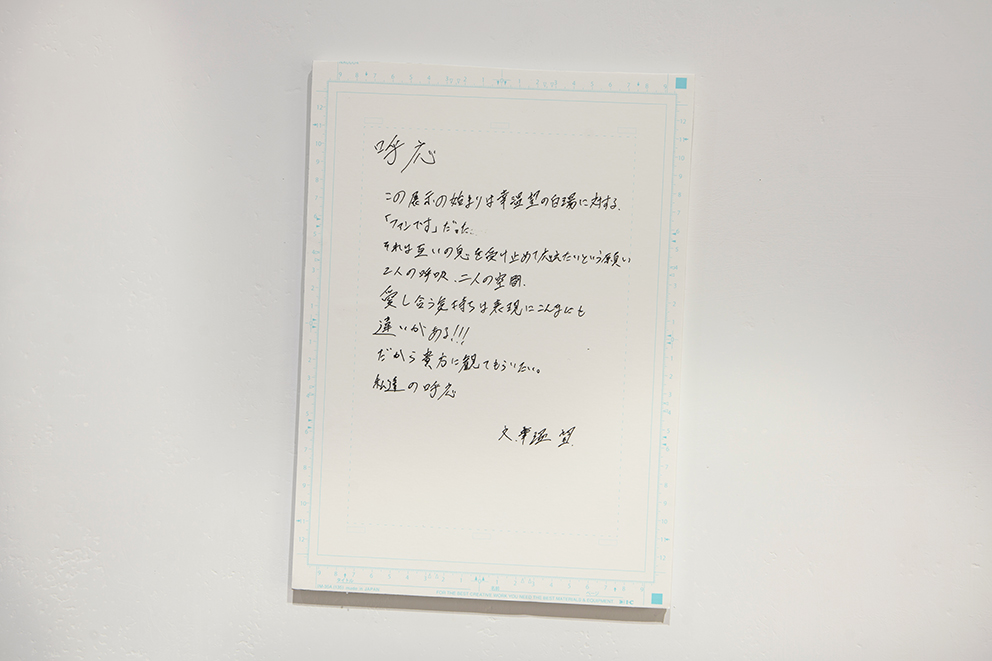 呼応
この展示の始まりは幸湿望の白瑞に対する、
「ファンです」だった。
それは互いの息を受け止めて応えたいという願い
2人の呼吸、二人の空間、
愛し合う気持ちは表現にこんなにも
違いがある!!!
だから貴方に観てもらいたい。
私達の呼応
文 幸湿 望